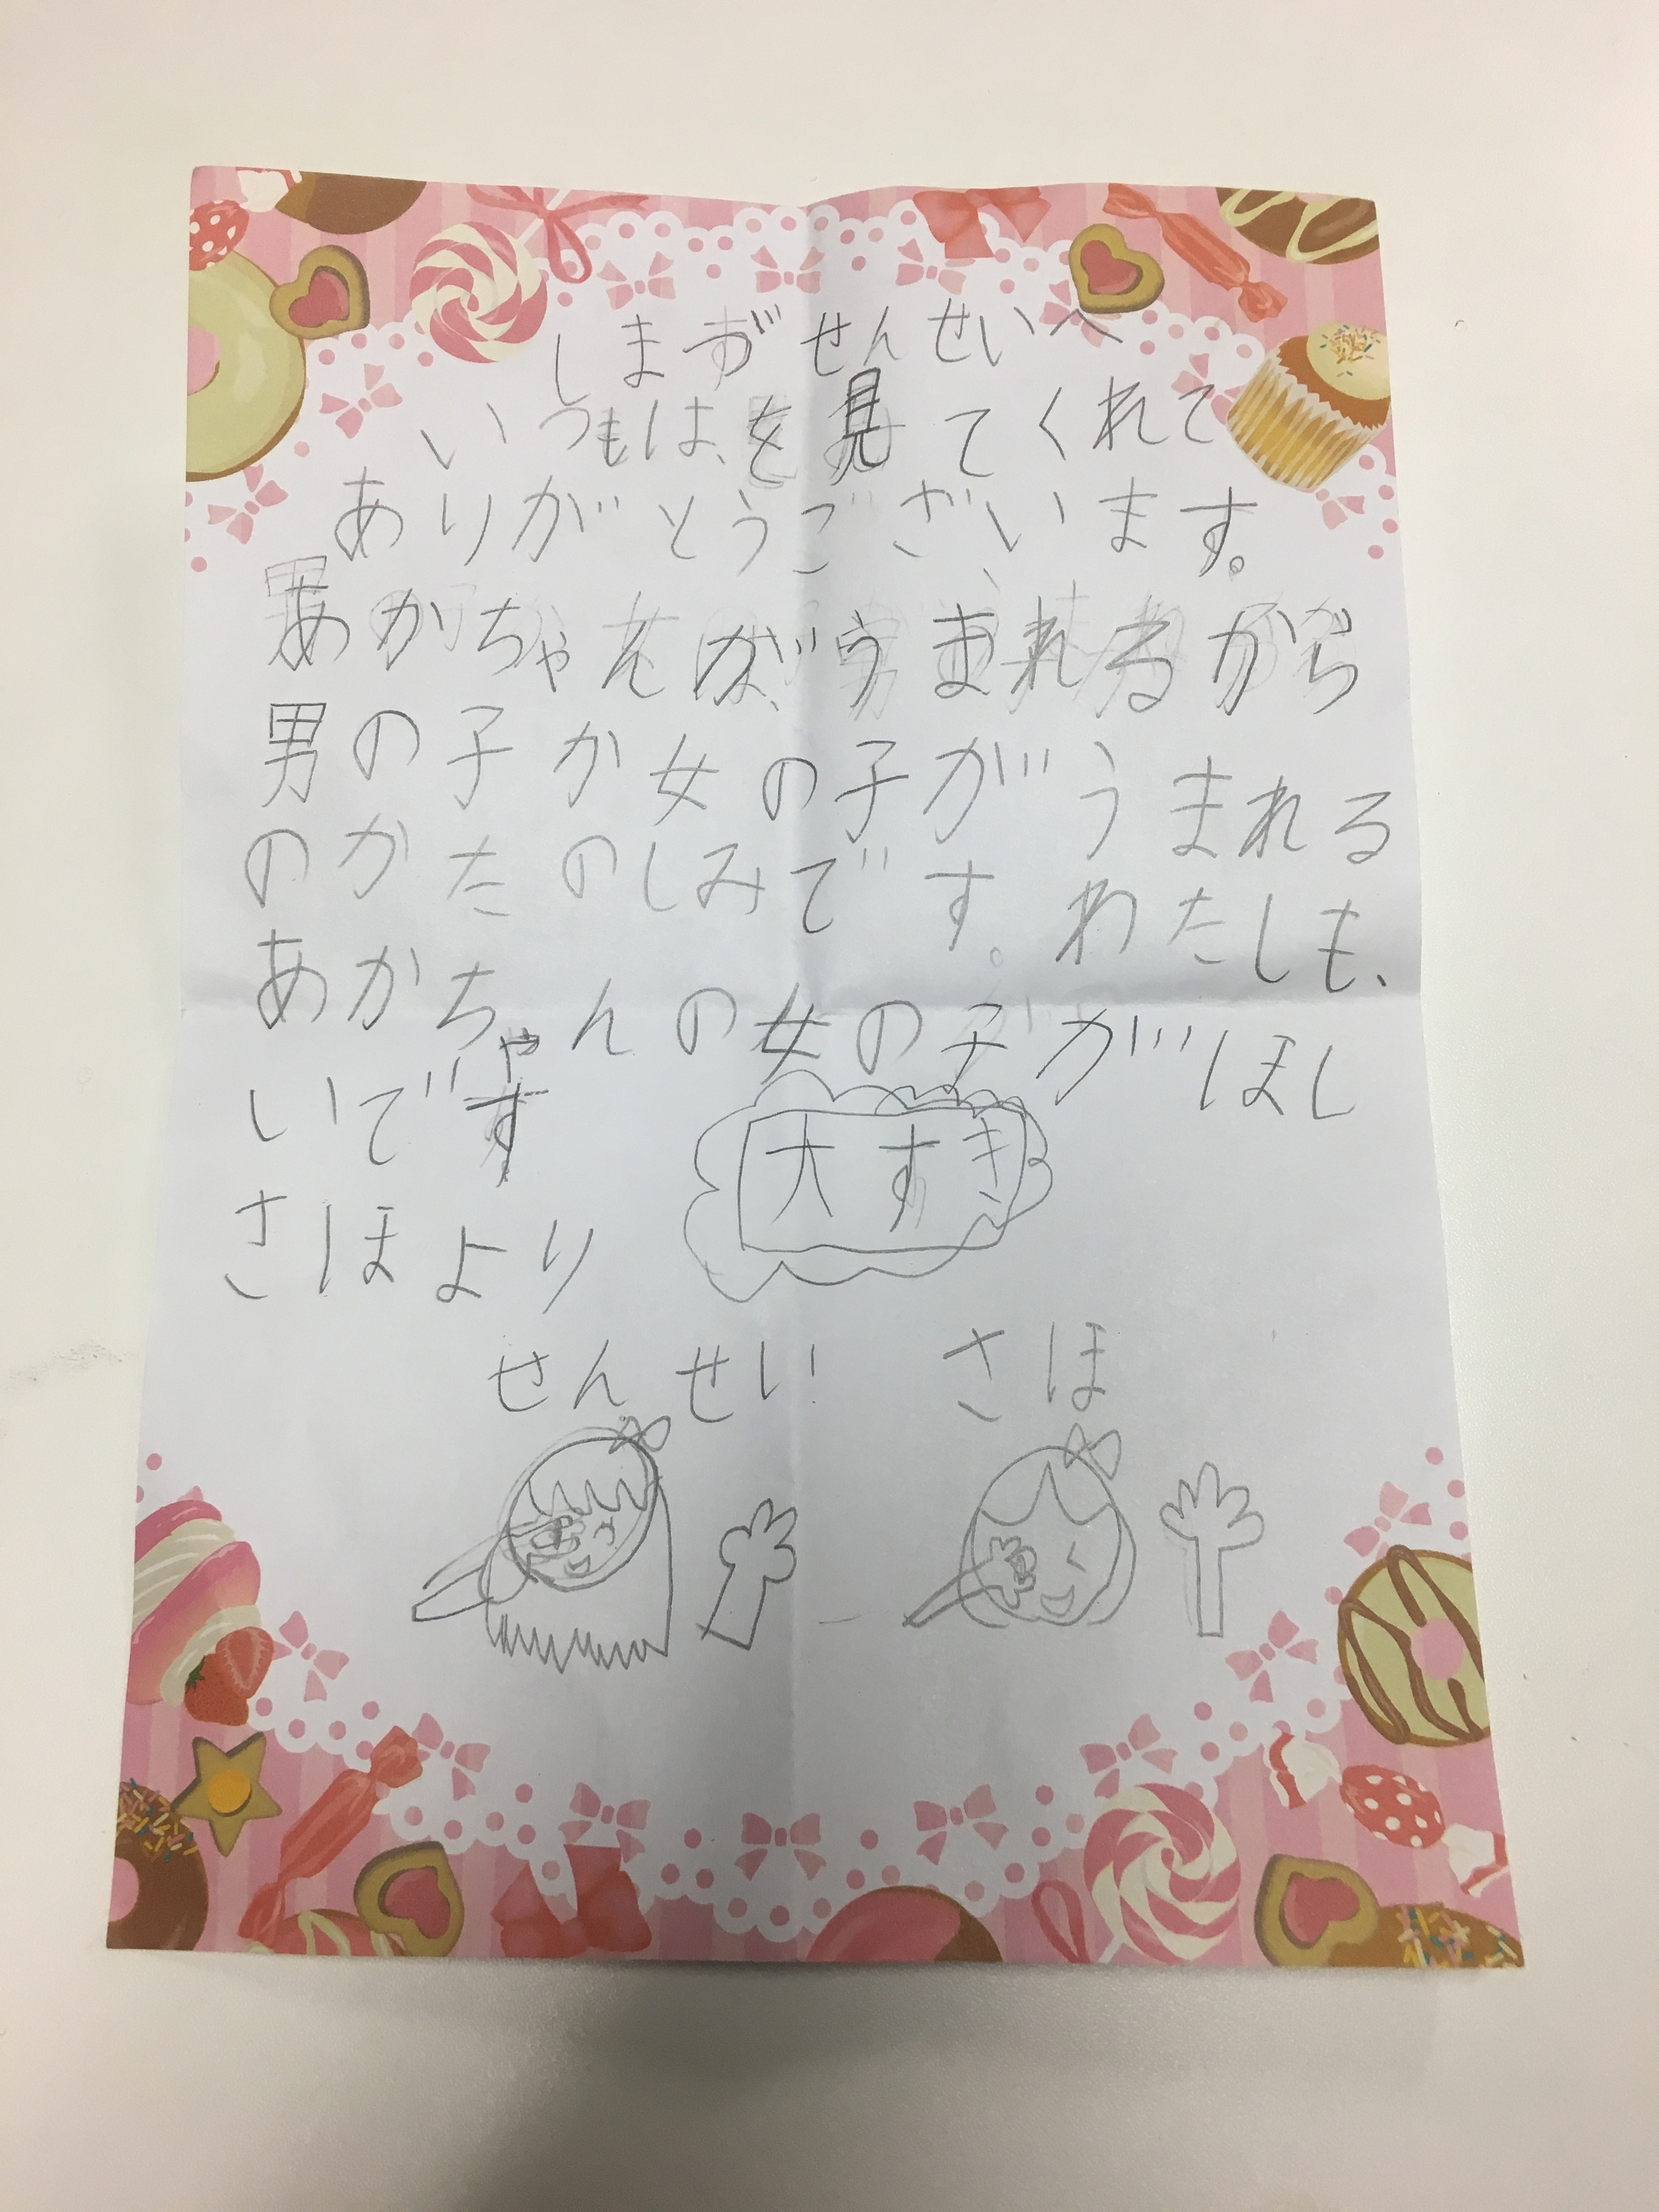 しまずせんせいへ
いつもはを見てくれて
ありがとうございます。
あかちゃんが、うまれるから
男の子か女の子がうまれる
のかたのしみです。わたしも、
あかちゃんの女の子がほし
いです
大すき
さほより
せんせい さほ